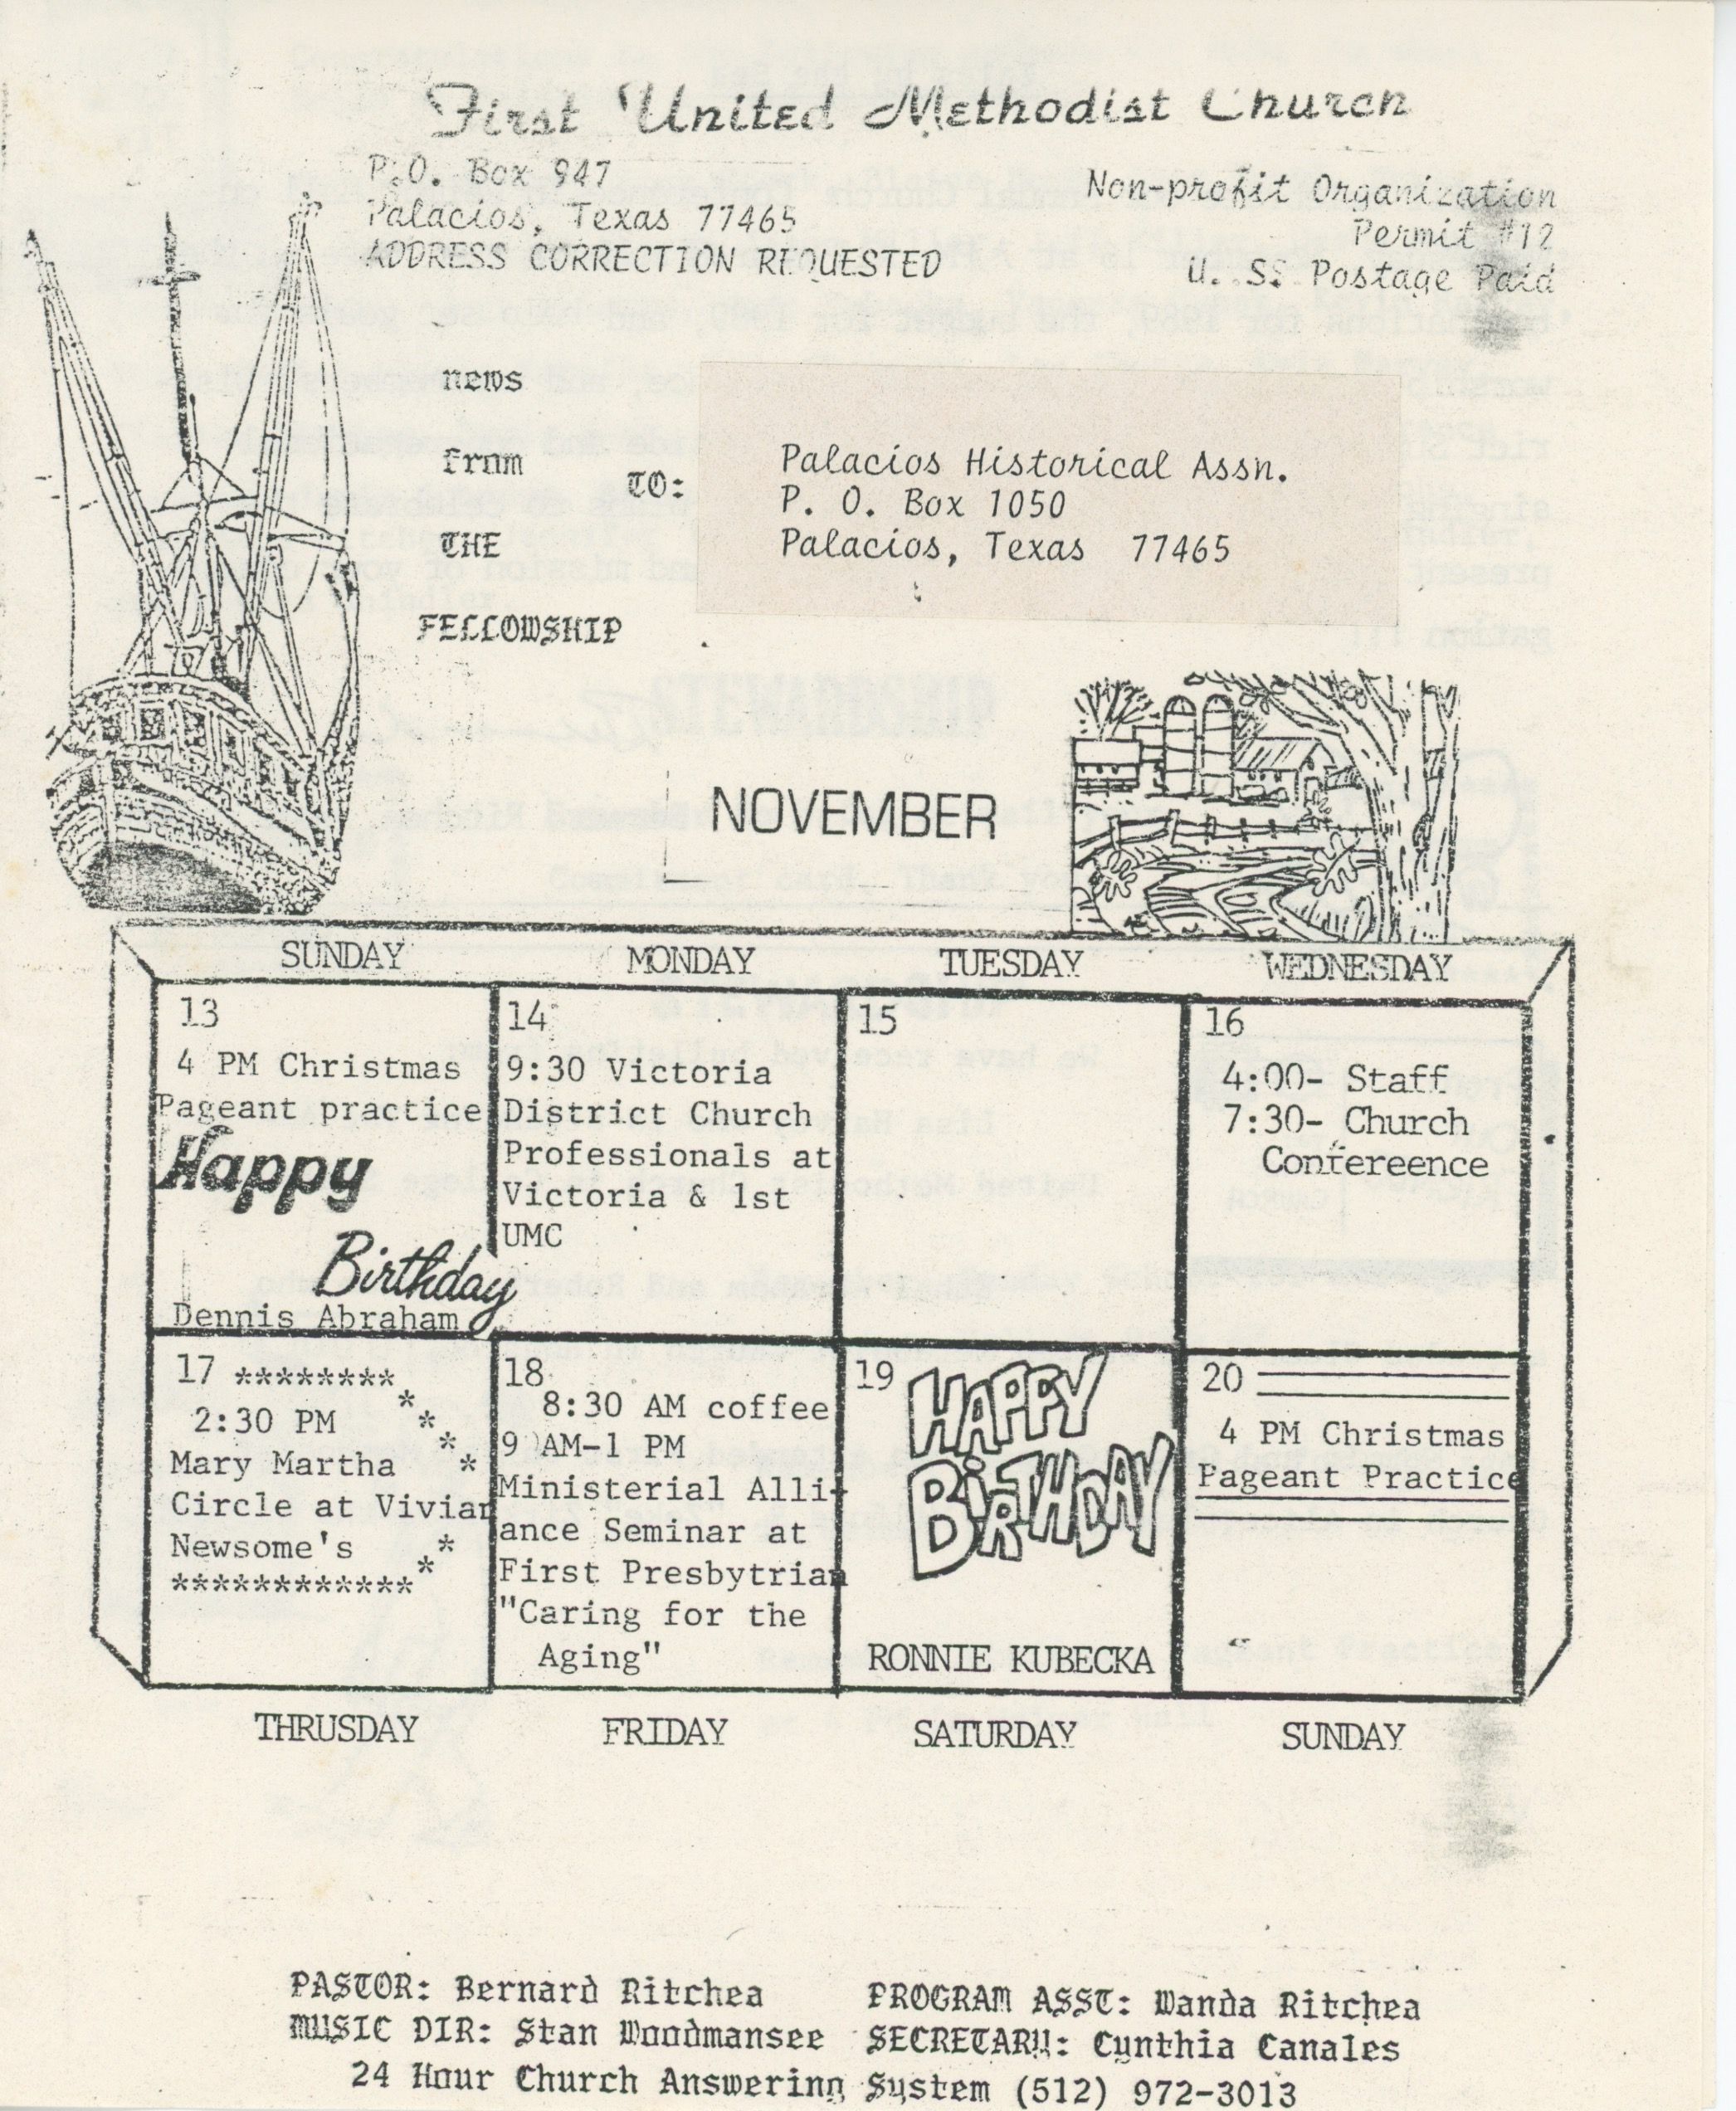 First United Methodist Church
P.O. Box 947
Palacios, Texas 77465
ADDRESS CORRECTION REQUESTED
Non-profit Organization
Permit #12
U. S. Postage Paid
news
from
THE
FELLOWSHIP
TO:
Palacios Historical Assn.
P. O. Box 1050
Palacios, Texas 77465
NOVEMBER
SUNDAY MONDAY TUESDAY WEDNESDAY
13
4 PM Christmas
Pageant practice
Happy
Birthday
Dennis Abraham
14
9:30 Victoria
District Church
Professionals at
Victoria & 1st
UMC
15
16
4:00- Staff
7:30- Church
Confereence
17 ********
*
2:30 PM *
*
Mary Martha *
Circle at Vivian
Newsome's *
************ *
18
8:30 AM coffee
9 AM-1 PM
Ministerial Alli-
ance Seminar at
First Presbytrian
"Caring for the
Aging"
19
HAPPY
BIRTHDAY
RONNIE KUBECKA
20
4 PM Christmas
Pageant Practice
THRUSDAY FRIDAY SATURDAY SUNDAY
PASTOR: Bernard Ritchea PROGRAM ASST: Wanda Ritchea
MUSIC DIR: Stan Woodmansee SECRETARY: Cynthia Canales
24 Hour Church Answering System (512) 972-3013